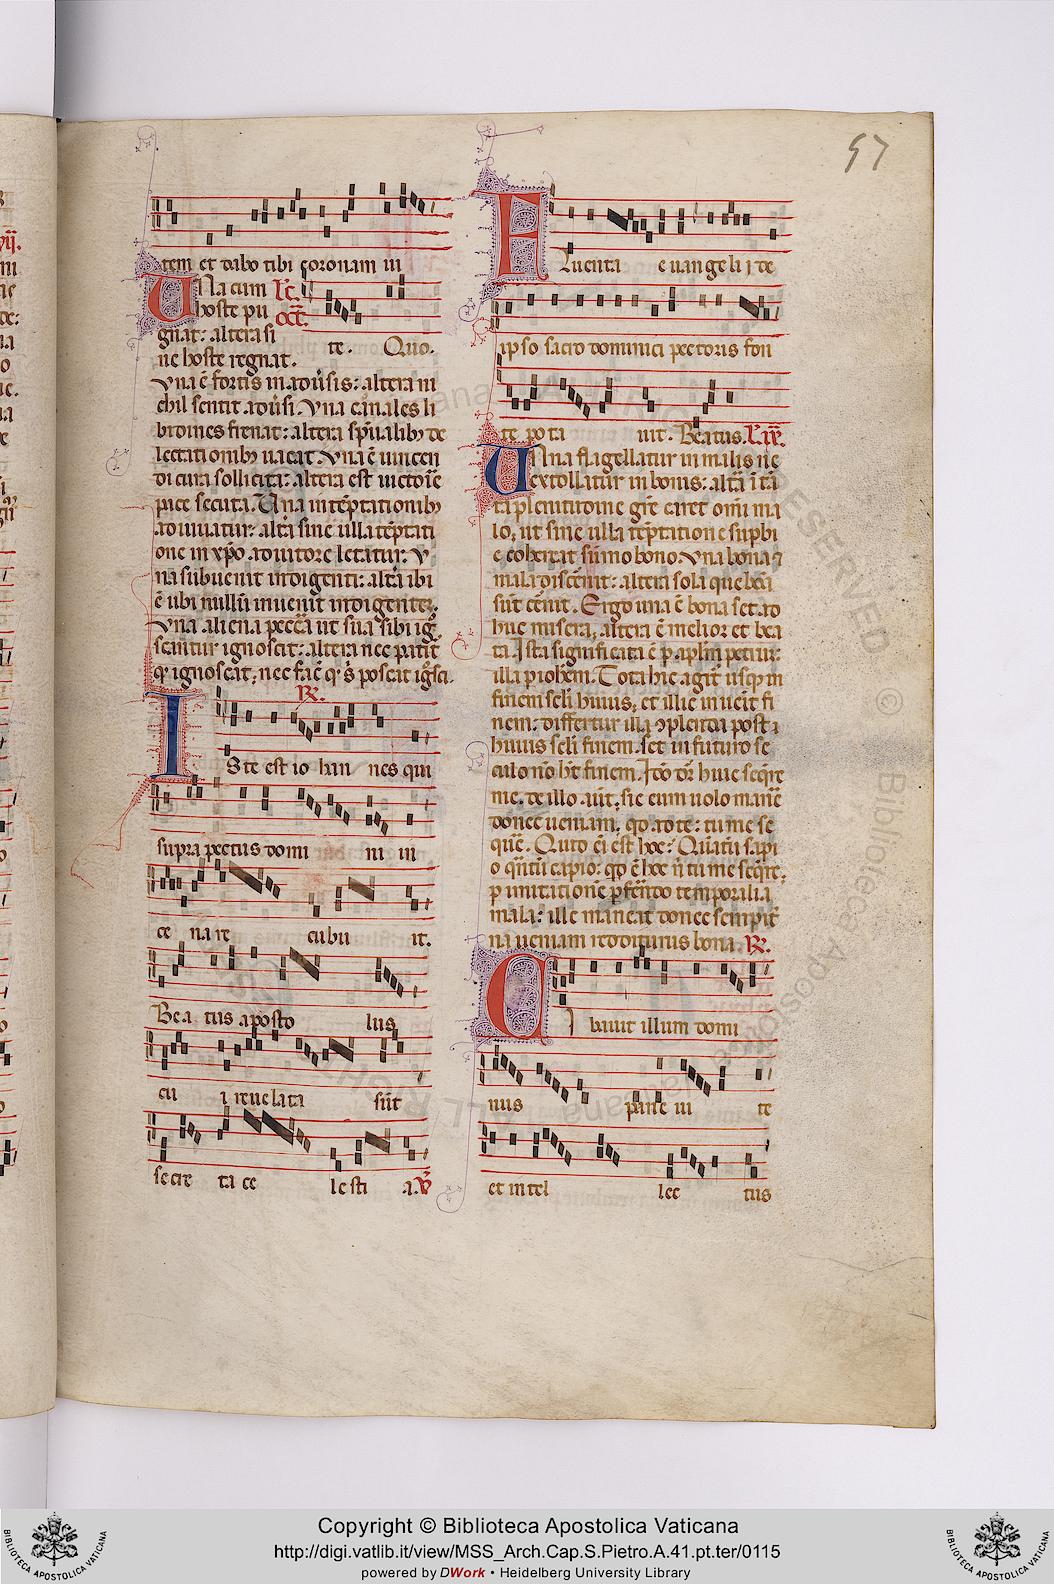 57
tem et dabo tibi coronam ui
te. Quo.
Una cum
hoste pu
gnat: altera si
ne hoste regnat.
Vna ē fortis in adūsis: altera ni
chil sentit adūsi. Vna carnales li
bidines frenat: altera spūalibꝫ de
lectationibꝫ uacat. Vna ē uincen
di cura sollicita: altera est uictorie
pace secura. Una in tēptationibꝫ
adiuuatur: altā sine ulla tēptati
one in xp̄o adiutore letatur: V
na subuenit indigenti: altā ibi
ē ubi nullū inuenit indigentē.
Vna aliena peccā ut sua sibi
ignoscat: altera nec patit
℟.
Iste est iohannes qui
supra pectus domini in
cena recubuit.
Beatus apostolus
cui reuelata sūt
secreta celestia. ℣
Fluenta euangelij de
ipso sacro dominici pectoris fon
te potauit. Beatus.
Una flagellatur in malis ne
extollatur in bonis: altā tā
ta plenitudine grē caret omī ma
lo, ut sine ulla tēptatione supbi
e cohereat sūmo bono. Vna bona ⁊
mala discernit: altera sola que bōa
sūt cernit. Ergo una ē bona set ad
huc misera, altera ē melior et bea
ta. Ista significata ē p aplm petrum:
illa p iohēm. Tota hic agit usqꝫ in
finem scli huius, et illic inuēit fi
nem: differtur illa ꝯplenda post
huius scli finem. set in futuro se
culo nō ht finem. Ido dr huic seqre
me. de illo aut: sic eum uolo manē
donec ueniam, qd ad te: tu me se
quē. Quid ei est hoc? Quātū sapi
o quātū capio: qd ē hoc n tu me seqre,
p imitationē pferendo temporalia
mala: ille maneat donec sempit
na ueniam redditurus bona. ℟.
Cibauit illum domi
nus pane uite
et intellectus
Copyright © Biblioteca Apostolica Vaticana
http://digi.vatlib.it/view/MSS_Arch.Cap.S.Pietro.A.41.pt.ter/0115
powered by DWork • Heidelberg University Library